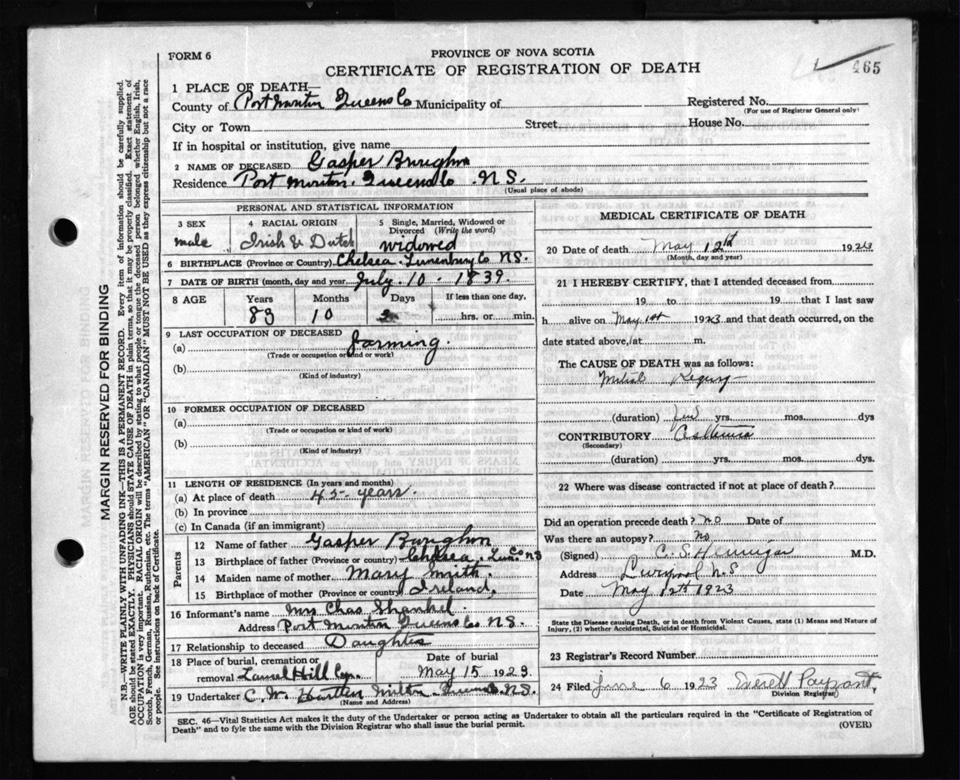 FORM 6
PROVINCE OF NOVA SCOTIA
CERTIFICATE OF REGISTRATION OF DEATH
465
1 PLACE OF DEATH—
County of Port Morton Queens Co Municipality of
Registered No.
(For use of Registrar General only)
City or Town Street House No.
If in hospital or institution, give name
2 NAME OF DECEASED Gasper
Residence Port Morton. Queens Co. N.S.
(Usual place of abode)
PERSONAL AND STATISTICAL INFORMATION
3 SEX 4 RACIAL ORIGIN 5 Single, Married, Widowed or Divorced (Write the word)
male Irish & Dutch widowed
6 BIRTHPLACE (Province or Country) Chelsea. Lunenburg Co N.S.
7 DATE OF BIRTH (month, day and year) July. 10. 1839.
8 AGE Years Months Days If less than one day,
83 10 2 hrs. or min.
9 LAST OCCUPATION OF DECEASED
(a) farming.
(Trade or occupation or kind or work)
(b)
(Kind of industry)
10 FORMER OCCUPATION OF DECEASED
(a)
(Trade or occupation or kind of work)
(b)
(Kind of industry)
11 LENGTH OF RESIDENCE (In years and months)
(a) At place of death 45 years.
(b) In province
(c) In Canada (if an immigrant)
Parents
12 Name of father Gasper
13 Birthplace of father (Province or country) Chelsea. Lun. Co NS
14 Maiden name of mother Mary Smith.
15 Birthplace of mother (Province or country) Ireland.
16 Informant's name Mrs Chas Shankel.
Address Port Morton Queens Co N.S.
17 Relationship to deceased Daughter
18 Place of burial, cremation or removal Laurel Hill Cem. Date of burial May 15 1923.
19 Undertaker C. W. Milton. Queens. N.S.
(Name and Address)
MEDICAL CERTIFICATE OF DEATH
20 Date of death May 12th 1923
(Month, day and year)
21 I HEREBY CERTIFY, that I attended deceased from
19 to 19 that I last saw
h alive on May 1st 1923 and that death occurred, on the
date stated above, at m.
The CAUSE OF DEATH was as follows:
Mitral
(duration) yrs. mos. dys
CONTRIBUTORY
(Secondary)
(duration) yrs. mos. dys.
22 Where was disease contracted if not at place of death?
Did an operation precede death? No Date of
Was there an autopsy? No
(Signed) C. S. Hennigar M.D.
Address Liverpool N.S
Date May 12th 1923
State the Disease causing Death, or in death from Violent Causes, state (1) Means and Nature of
Injury, (2) whether Accidental, Suicidal or Homicidal.
23 Registrar's Record Number
24 Filed June 6 1923 Payzant.
Division Registrar
SEC. 46—Vital Statistics Act makes it the duty of the Undertaker or person acting as Undertaker to obtain all the particulars required in the "Certificate of Registration of
Death" and to fyle the same with the Division Registrar who shall issue the burial permit.
(OVER)
MARGIN RESERVED FOR BINDING
N.B.—WRITE PLAINLY WITH UNFADING INK—THIS IS A PERMANENT RECORD. Every item of information should be carefully supplied.
AGE should be stated EXACTLY. PHYSICIANS should STATE CAUSE OF DEATH in plain terms, so that it may be properly classified. Exact statement of
OCCUPATION is very important. RACIAL ORIGIN will be described by stating to what people or tongue the deceased person belonged whether English, Irish,
Scotch, French, German, Russian, Ruthenian, etc. The terms "AMERICAN" OR "CANADIAN" MUST NOT BE USED as they express citizenship but not a race
or people. See instructions on back of Certificate.